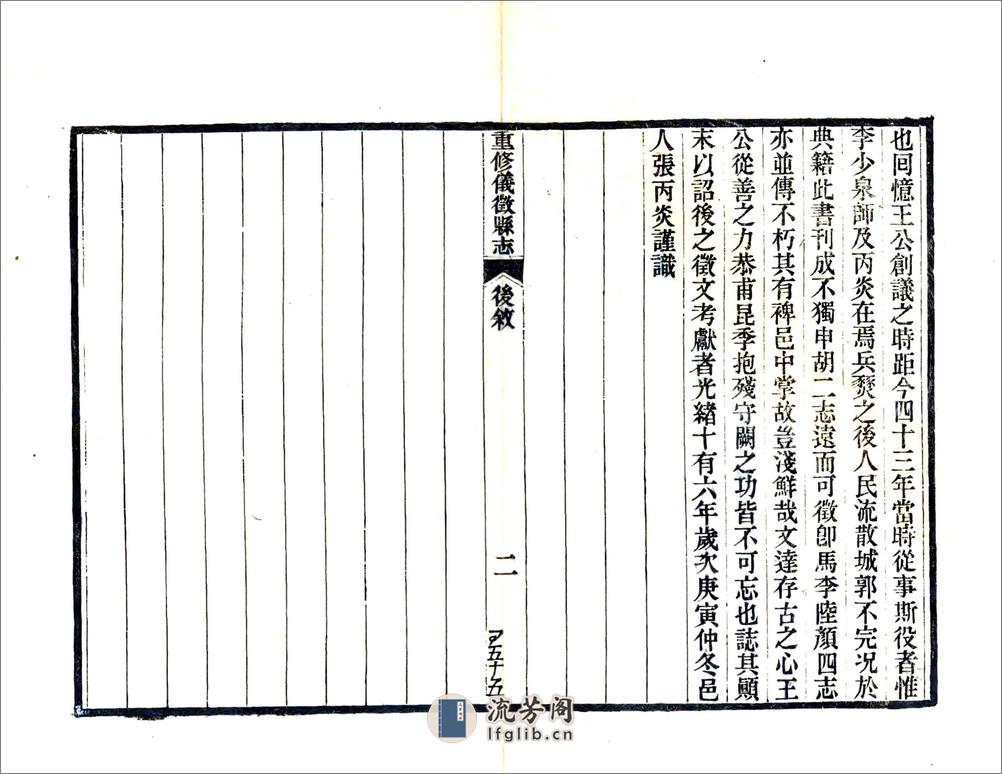 也囘憶王公創議之時距今四十三年當時從事斯役者惟
李少泉師及丙炎在焉兵燹之後人民流散城郭不完况於
典籍此書刊成不獨申胡二志遠而可徵卽馬李陸顏四志
亦並傳不朽其有裨邑中掌故豈淺鮮哉文達存古之心王
公從善之力恭甫昆季抱殘守闕之功皆不可忘也誌其顚
末以詔後之徵文考獻者光緒十有六年歲次庚寅仲冬邑
人張丙炎謹識
重修儀徵縣志
後敘
二
五十五
流芳阁
lfglib.cn